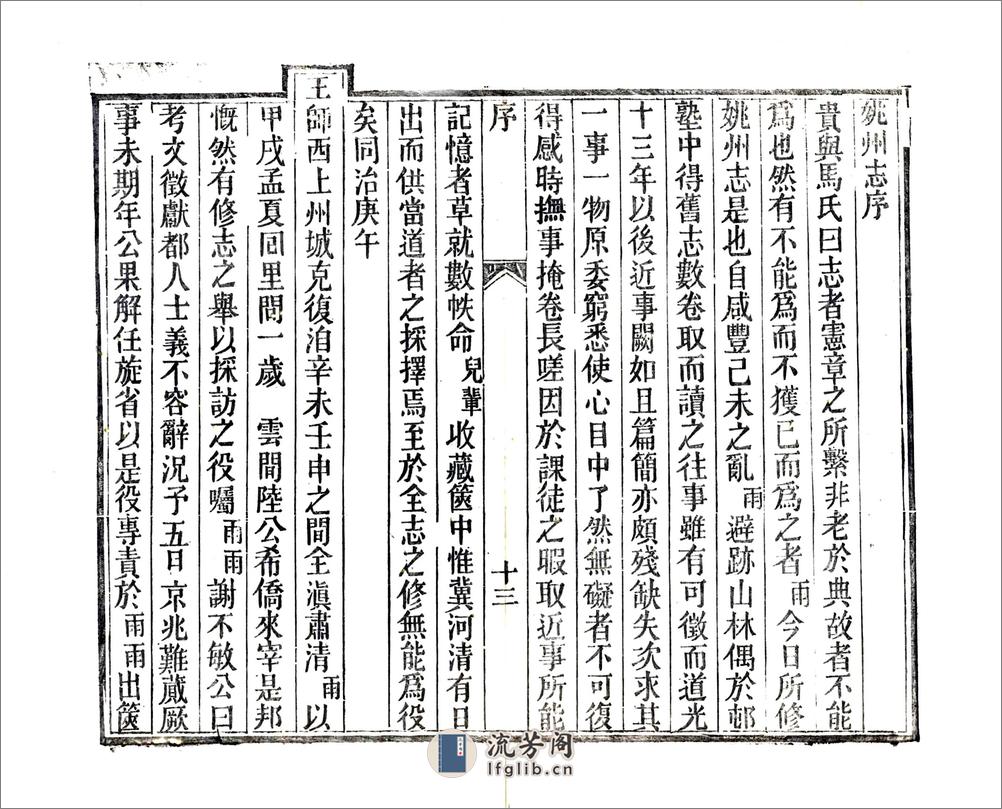 姚州志序
貴與馬氏曰志者憲章之所繫非老於典故者不能
爲也然有不能爲而不獲已而爲之者雨今日所修
姚州志是也自咸豐己未之亂雨避跡山林偶於邨
塾中得舊志數卷取而讀之往事雖有可徵而道光
十三年以後近事闕如且篇簡亦頗殘缺失次求其
一事一物原委窮悉使心目中了然無礙者不可復
得感時撫事掩卷長嗟因於課徒之暇取近事所能
序
十三
記憶者草就數帙命兒輩收藏篋中惟冀河清有日
出而供當道者之採擇焉至於全志之修無能爲役
矣同治庚午
王師西上州城克復洎辛未壬申之間全滇肅清雨以
甲戌孟夏回里間一歲 雲間陸公希僑來宰是邦
慨然有修志之舉以採訪之役囑雨雨謝不敏公曰
考文徵獻都人士義不容辭況予五日京兆難蕆厥
事未期年公果解任旋省以是役專責於雨雨出篋
流芳阁
lfglib.cn